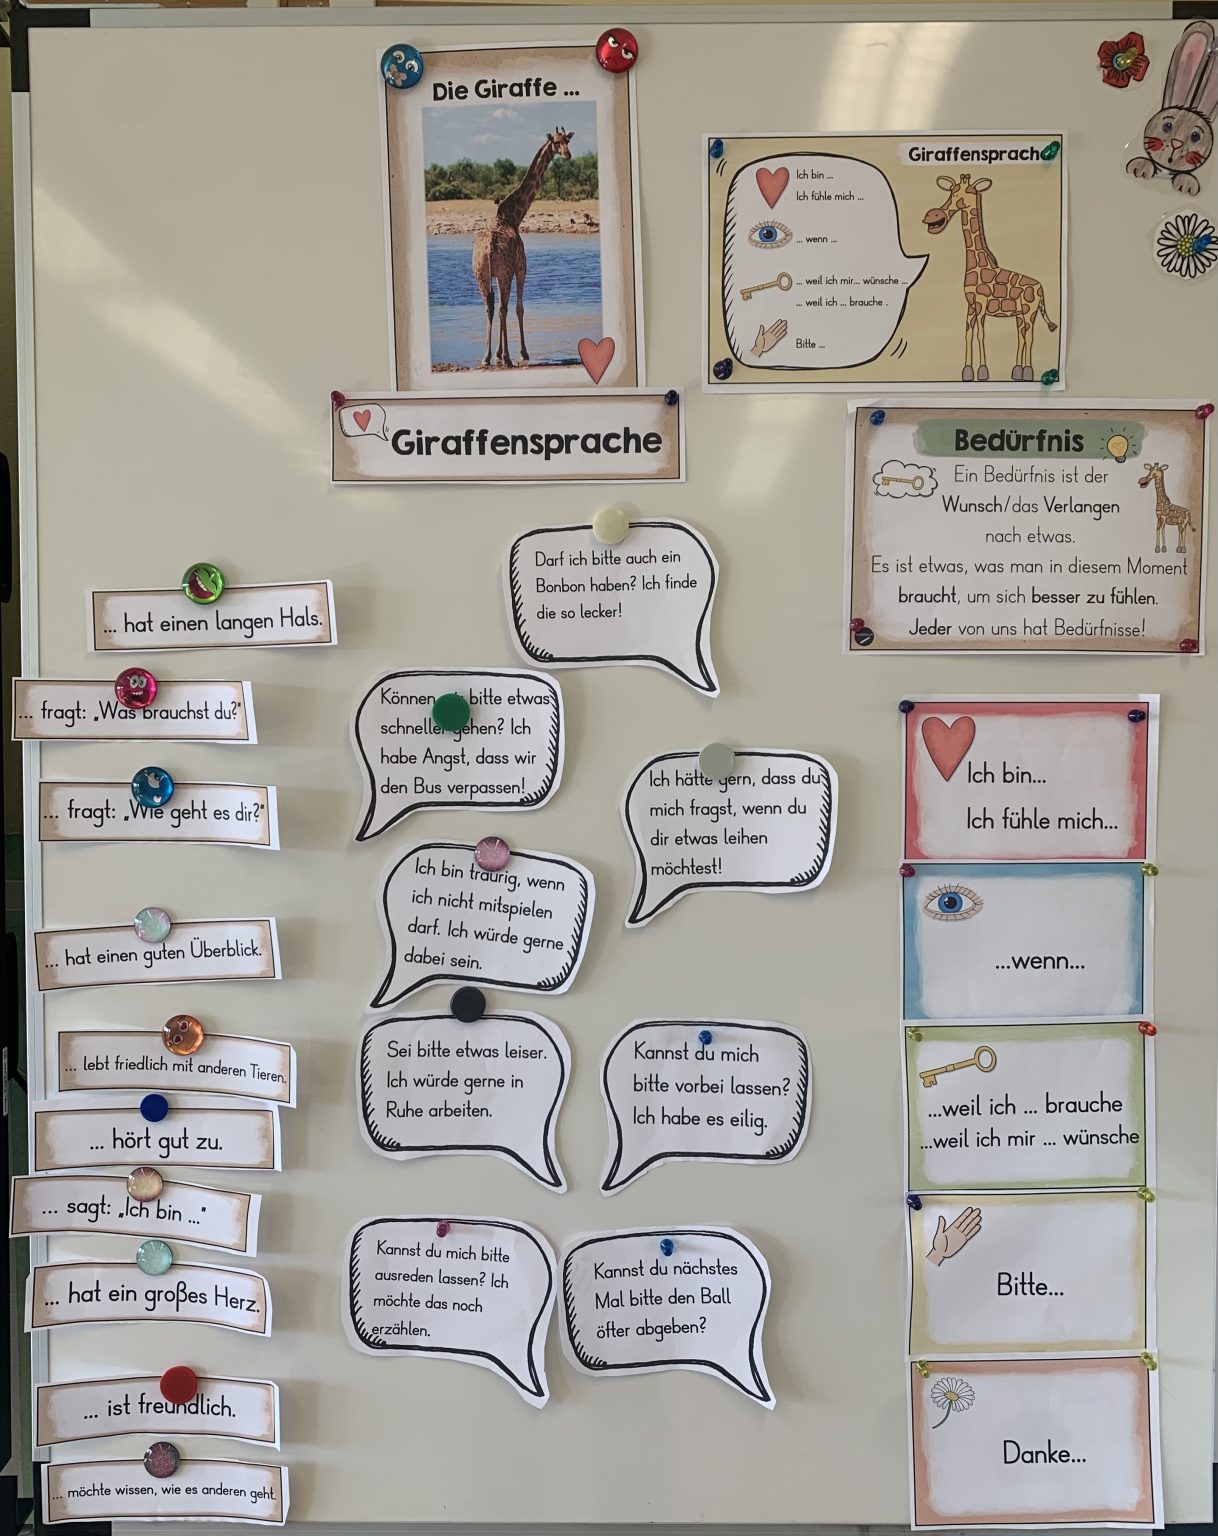 Die Giraffe ...
Giraffensprache
Ich bin ...
Ich fühle mich ...
... wenn ...
... weil ich mir... wünsche ...
... weil ich ... brauche .
Bitte ...
Giraffensprache
Bedürfnis
Ein Bedürfnis ist der
Wunsch/das Verlangen
nach etwas.
Es ist etwas, was man in diesem Moment
braucht, um sich besser zu fühlen.
Jeder von uns hat Bedürfnisse!
... hat einen langen Hals.
... fragt: „Was brauchst du?"
... fragt: „Wie geht es dir?"
... hat einen guten Überblick.
... lebt friedlich mit anderen Tieren.
... hört gut zu.
... sagt: „Ich bin ..."
... hat ein großes Herz.
... ist freundlich.
... möchte wissen, wie es anderen geht.
Darf ich bitte auch ein
Bonbon haben? Ich finde
die so lecker!
Können bitte etwas
schneller gehen? Ich
habe Angst, dass wir
den Bus verpassen!
Ich hätte gern, dass du
mich fragst, wenn du
dir etwas leihen
möchtest!
Ich bin traurig, wenn
ich nicht mitspielen
darf. Ich würde gerne
dabei sein.
Sei bitte etwas leiser.
Ich würde gerne in
Ruhe arbeiten.
Kannst du mich
bitte vorbei lassen?
Ich habe es eilig.
Kannst du mich bitte
ausreden lassen? Ich
möchte das noch
erzählen.
Kannst du nächstes
Mal bitte den Ball
öfter abgeben?
Ich bin...
Ich fühle mich...
...wenn...
...weil ich ... brauche
...weil ich mir ... wünsche
Bitte...
Danke...